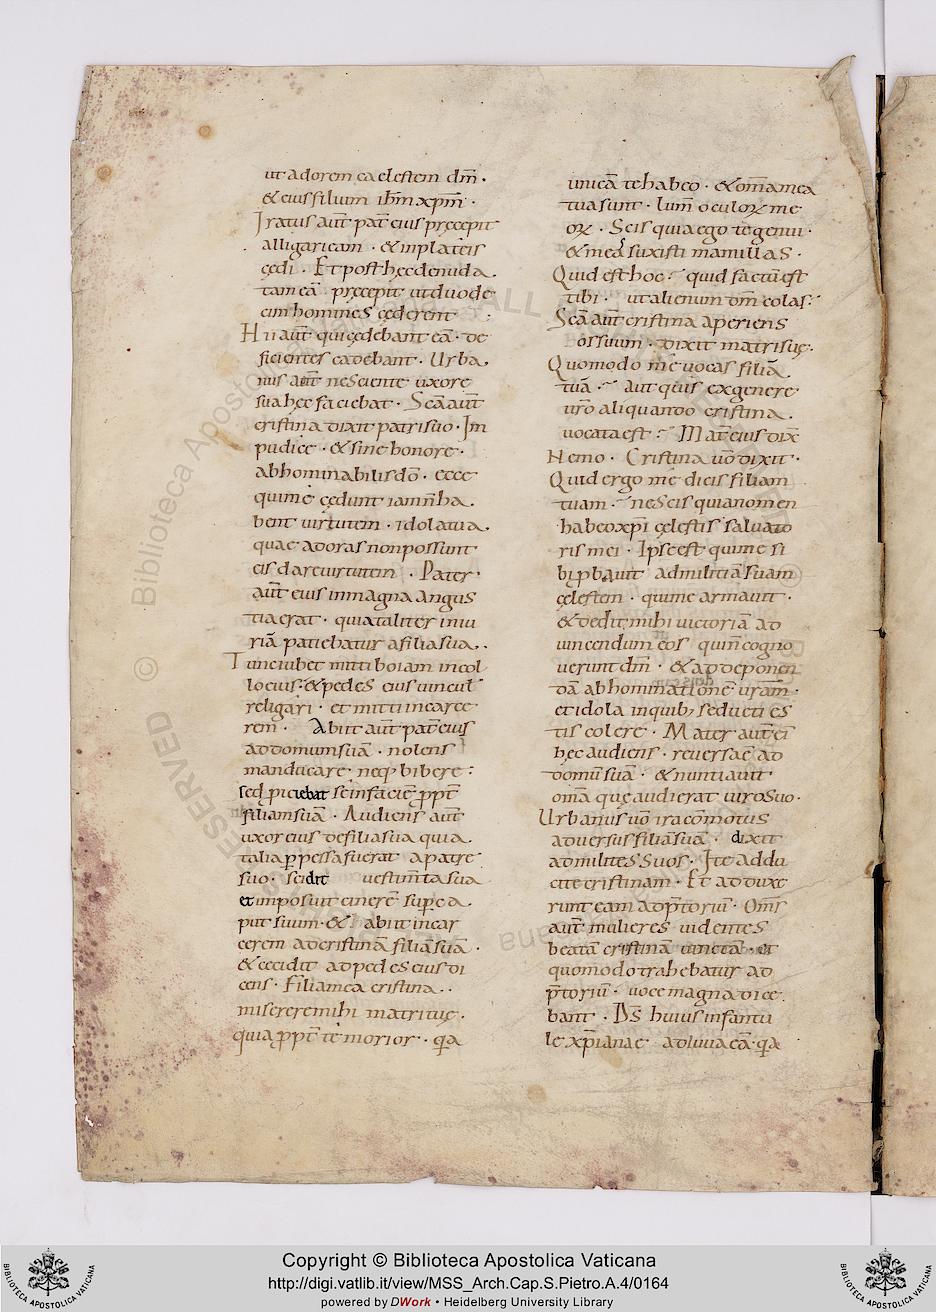 ut adorem caelestem dm̄ ·
& eius filium ihm̄ xpm̄ ·
Iratus aut̄ pat̄ eius pręcepit
alligari eam · & in plateis
cędi · Et post hęc denuda
tam eā pręcepit ut duode
cim homines cęderent
Hii aut̄ qui cędebant eā · de
ficientes cadebant · Urba
nus aut̄ nesciente uxore
sua hęc faciebat · Sc̄a aut̄
cristina dixit patri suo · Im
pudice · & sine honore ·
abhominabilis dō · ecce
qui me cędunt iam n̄ ha
bent uirtutem · idola tua
quae adoras non possunt
eis dare uirtutem · Pater
aut̄ eius in magna angus
tia erat · quia taliter iniu
riā patiebatur a filia sua ·
Tunc iubet mitti boiam in col
lo eius · & pedes eius uincul
religari · et mitti in carce
rem · Abiit aut̄ pat̄ eius
ad domum suā · nolens
manducare neq; bibere :
sed piciebat se in faciē ppt̄
filiam suā · Audiens aut̄
uxor eius de filia sua quia
talia ꝑpessa fuerat a patre
suo · scidit uestim̄ta sua
et imposuit cinerē sup ca
put suum · & abiit in car
cerem ad cristinā filiā suā ·
& cecidit ad pedes eius di
cens · Filia mea cristina ·
miserere mihi matri tuę ·
quia ppt̄ te morior · q̄a
unicā te habeo · & om̄a mea
tua sunt · lum̄ oculoꝝ me
oꝝ · Scis quia ego te genui ·
& mea suxisti mamillas ·
Quid est hoc · quid factū est
tibi · ut alienum dm̄ colas ·
Sc̄a aut̄ cristina aperiens
os suum · dixit matri suę ·
Quomodo me uocas filiā
tuā · aut quis ex genere
ur̄o aliquando cristina
uocata est · Mat̄ eius dix̄
Nemo · Cristina uō dixit ·
Quid ergo me dicis filiam
tuam · nescis quia nomen
habeo xpī cęlestis saluato
ris mei · Ipse est qui me si
bi ꝑbauit ad militiā suam
cęlestem · qui me armauit ·
& dedit mihi uictoriā ad
uincendum eos qui n̄ cogno
uerunt dm̄ · & ad deponen
dā abhominationē ur̄am ·
et idola in quib; seducti es
tis colere · Mater aut̄ ei
hęc audiens · reuersa ē ad
domū suā · & nuntiauit
om̄a quę audierat uiro suo ·
Urbanus uō ira cōmotus
aduersus filiā suā · dixit
ad milites suos · Ite addu
cite cristinam · Et adduxe
runt eam ad p̄toriū · Om̄s
aut̄ mulieres uidentes
beatā cristinā uinctā · et
quomodo trahebatur ad
p̄toriū · uoce magna dice
bant · Ds̄ huius infantu
le xpīanae adiuua eā · q̄a
Copyright © Biblioteca Apostolica Vaticana
http://digi.vatlib.it/view/MSS_Arch.Cap.S.Pietro.A.4/0164
powered by DWork • Heidelberg University Library